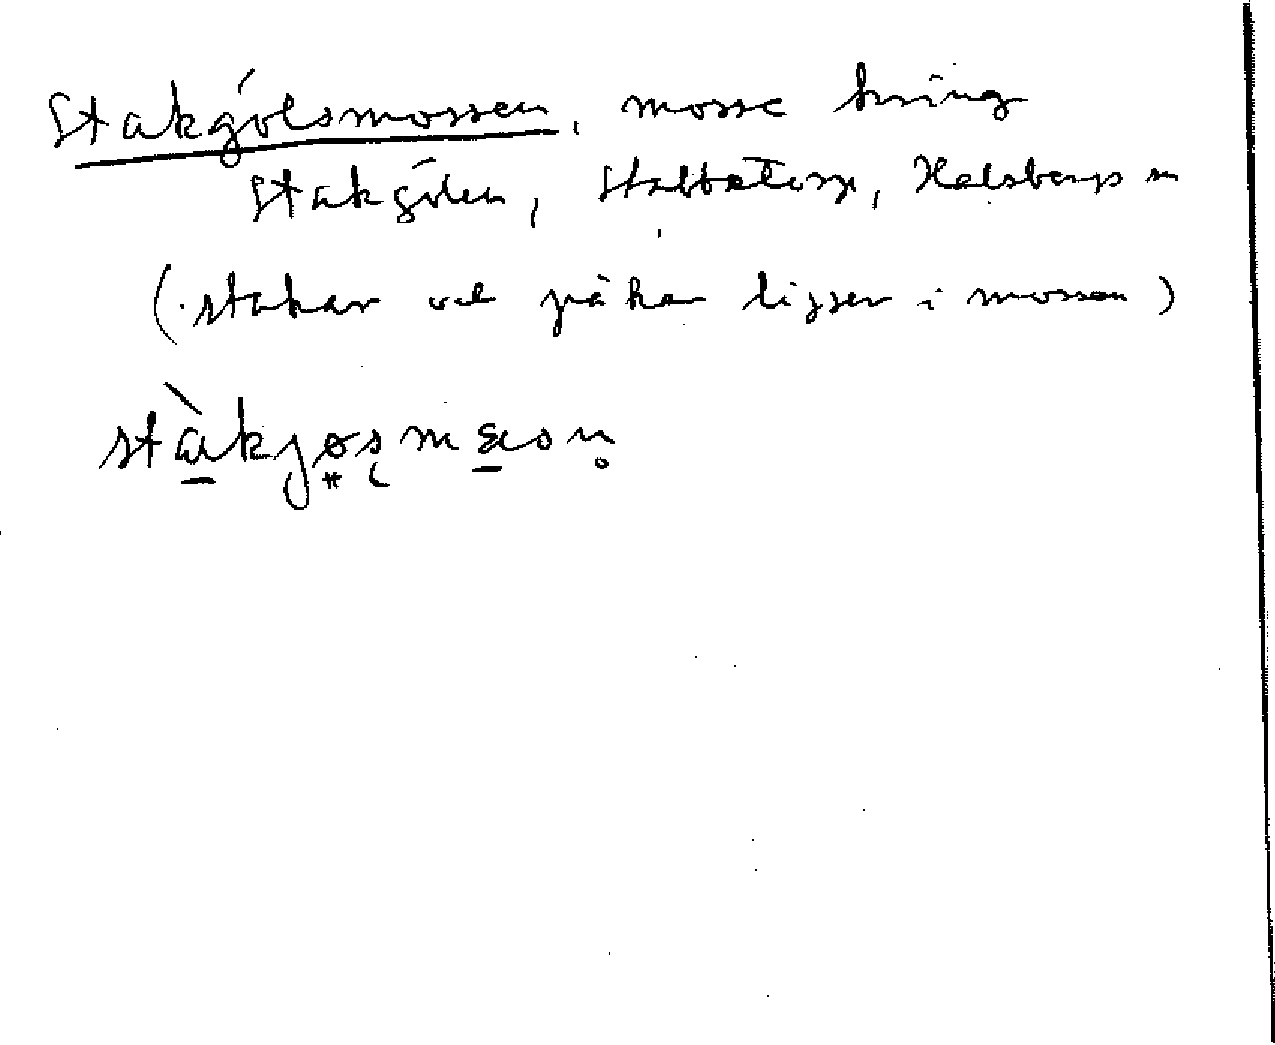 Stakgölsmossen, mosse kring
Stakgölen, Stabbetorp, Halsbergs sn
(stakar och påkar ligger i mossen)